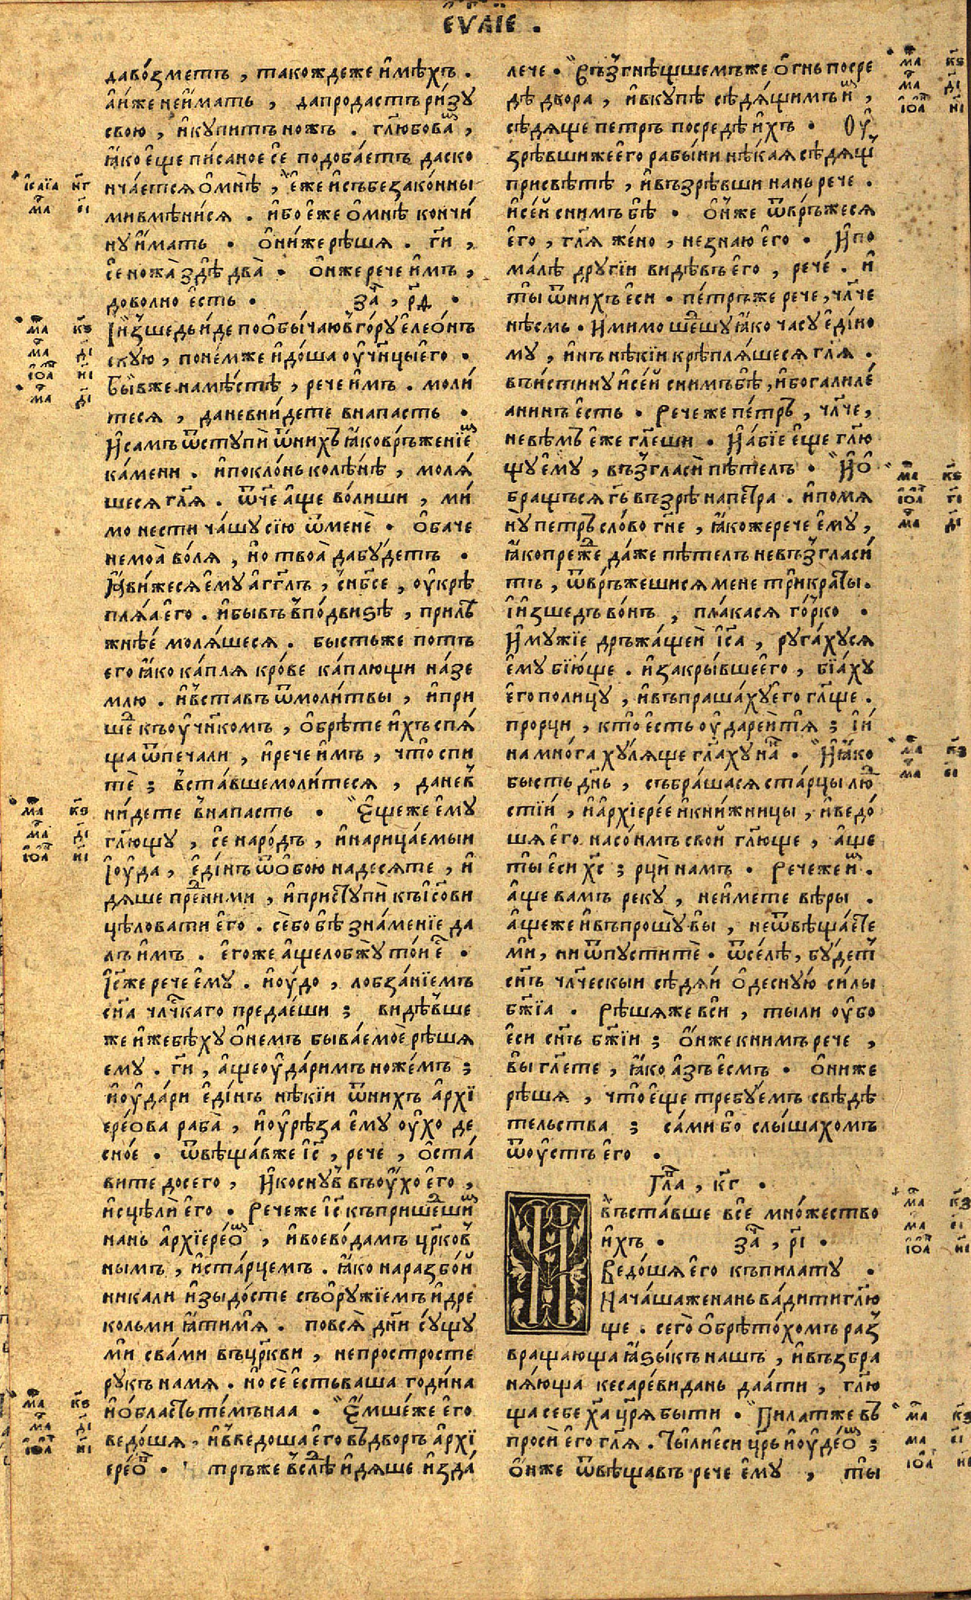 ЕѴ҃ЛІЕ .
давъзметъ , такождеже и҆мѣхъ .
а҆иже неи҆мать , дапродастъ ри́зу
свою , и҆купитъ ножъ . гл҃юбова́мъ ,
ꙗ҆́ко е҆ще пи́саное се̑ подоба́етъ даско
нча́ется о҆мнѣ̀ , е҆́же и҆съ беззако́нны
мивмѣни́ся . и҆бо е҆́же о҆мнѣ̀ кончи́
ну и҆́мать . о҆ни́жерѣшя . гд҃и ,
се̑ ножа̀ здѣ̀ два̀ . о҆нже рече и҆̀мъ ,
доволно е҆сть . за҃ , рд҃ .
И҆зшедъ и҆́де пообы́чаю вго́ру е҆лео́нъ
скую , поне́мже и҆до́ша оу҆ч҃нцы е҆го̀ .
бы́вже намѣстѣ , рече и҆̀мъ . моли́
теся , даневни́дете внапасть .
И҆самъ ѿступѝ ѿнихъ ꙗ҆́ко връжение
ка́мени . и҆покло́нь колѣ́нѣ , моля́
шеся гл҃я . ѿч҃е а҆́ще во́лиши , ми́
мо нести ча́шу сїю ѿменѐ . о҆ба́че
немоа̀ во́ля , но твоа̀ дабу́детъ .
Ꙗ҆ви́жеся е҆му а҆́гг҃лъ , с̾нб҃се , оу҆крѣ
пля́а е҆го . и҆бывъ вподви́зѣ , прилѣ
жнѣе моля́шеся . бысть же потъ
его ꙗ҆́ко ка́пля кро́ве ка́плющи на́зе
млю . и҆вставъ ѿмоли́твы , и҆при
шедъ къ оу҆ч҃нкомъ , о҆брѣ́те и҆хъ спя́
ща ѿпеча́ли , и҆рече и҆мъ , что̀ спи
те̑ ; вста́вше моли́теся , даневъ
ни́дете внапасть . Е҆ще же е҆му
гл҃ющу , се̑ наро́дъ , и҆нарица́емыи
И҆оу́да , е҆ди́нъ ѿо҆бою надесяте , и҆
дяше пред ними , и҆приступѝ къ і҆с҃ови
цѣловати е҆го . се́бо бѣ̀ зна́мение да
лъ и҆́мъ . е҆го́же а҆́ще лобжу̀ то́и е҆сть .
І҆с҃же рече е҆му . і҆оу́до , лобза́нїемъ
сн҃а чл҃чкаго предае́ши ; ви́дѣвше
же и҆же бѣ́ху о҆ нем быва́емое̑ рѣшя
ему . гд҃и , а҆щеоу҆да́римъ ноже́мъ ;
и҆оу҆да́ри е҆ди́нъ нѣ́кїи ѿнихъ а҆рхї
ерео́ва раба̀ , и҆оу҆рѣ́за е҆му оу҆́хо де
сно́е . ѿвѣща́вже і҆с҃ , рече , о҆ста́
вите досего , И҆косну́в въ оу҆́хо его ,
и҆сцѣлѝ е҆го . Речеже і҆с҃ къ прише́дши
нань а҆рхїерео́мъ , и҆воево́дамъ цр҃ков
нымъ , и҆ста́рцемъ . ꙗ҆́ко наразбо́и
никали и҆зыдо́сте съ о҆ру́жїемъ и҆дре
кольми ꙗ҆ти мя̀ . повся̀ дн҃и су́щу
ми̑ сва́ми въ цр҃кви , непростросте
ру́къ намя . но̀ се̑ е҆стьва́ша годи́на
и҆о҆бласть те́мънаа . Е҆́мшеже е҆го
ведо́шя , и҆введоша е҆го въ дворъ а҆рхї
ерео́въ . тръже вслѣдъ и҆дяше и҆зда́
лече . Въ згнѣ́щшемъ же о҆́гнь посре
дѣ̀ двора , и҆вкупѣ сѣдя́щимъ и҆̀мъ ,
сѣдяще петръ посредѣ и҆́хъ . Оу҆
зрѣ́вши же е҆го рабы́ни нѣ́кая сѣдя́ща
присвѣтѣ , и҆възрѣ́вши нань рече .
и҆се́й снимъ бѣ̀ . о҆́нже ѿвръжеся
е҆го , гл҃я же́но , незна́ю е҆го . И҆по
ма́лѣ другїи видѣвъ е҆го , рече́ . и҆
ты̀ ѿнихъ е҆си . пе́тръже рече , чл҃че
нѣсмь . И҆мимо ше́дшу ꙗ҆ко часу е҆ди́но
му , и҆нъ нѣ́кїи крѣпля́шеся гл҃я .
въи́стину и҆се́й снимъ бѣ̀ , и҆бо галиле́
анинъ е҆сть . Рече же пе́тръ , чл҃че ,
невѣ́мъ е҆же гл҃еши . И҆а́бїе е҆ще гл҃ю
щу е҆му , въ згласѝ пѣ́телъ . И҆о
бра́щься гд҃ь възрѣ̀ напетра . и҆помя
ну̀ петръ сло́во гд҃не , ꙗ҆́кожерече е҆му ,
ꙗ҆́копрежде да́же пѣ́телъ невъзгласи́
тъ , ѿвръжешися мене трикраты .
И҆изшедъ во́нъ , пла́кася го́рко .
И҆мужїе дръжа́щеи і҆с҃а , руга́хуся
е҆му бїю́ще . и҆закры́вше е҆го , бїа́ху
е҆го полицу , и҆въпраша́ху е҆го гл҃ще .
прорци , кто̀ е҆сть оу҆дареи́ тя̀ ; і҆и́
на мно́га ху́ляще гл҃аху на́нь . И҆ꙗ҆ко
бысть дн҃ь , събра́шася ста́рцы лю́д
стїи , и҆а҆рхїере́е и҆кни́жницы , и҆ведо́
шя е҆го насо́нмъ свой гл҃юще , а҆ще
ты̀ е҆си хс҃ ; рцѝ намъ . Рече же и҆́мъ .
а҆́ще вамъ реку , неи҆мете вѣ́ры .
а҆щеже и҆въпрошу̀ вы , неѿвѣща́ете
ми , ни ѿпуститѐ . ѿсе́лѣ , бу́детъ
сн҃ъ чл҃ческыи сѣдя́и о҆деснѹ́ю си́лы
бж҃їа . Рѣшяже вси , ты́ли оу҆бо
е҆си сн҃ъ бж҃їи ; о҆́нже книмъ рече ,
вы̀ гл҃ете , ꙗ҆́ко а҆́зъ е҆смъ . о҆ниже
рѣшя , что̀ е҆ще тре́буемъ свѣдѣ́
тельства ; са́ми бо слы́шахомъ
ѿоу҆стъ е҆го .
Глава , кг҃ .
И҆въста́вше все̑ мно́жество
и҆хъ . за҃ , ре҃ .
Ведо́шя е҆го къ пилату .
Нача́ша же нань ва́дити гл҃ю
ще . сего̀ о҆брѣто́хомъ раз
враща́юща ꙗ҆зы́къ нашъ , и҆възбра
ня́юща кесаре́ви дань дая́ти , гл҃ю
ща себе ха҃ цр҃я бы́ти . Пила́т же въ
просѝ е҆го гл҃я . Ты́ ли е҆си цр҃ь и҆оуде́омъ ;
о҆́нже ѿвѣща́въ рече е҆му , ты̀